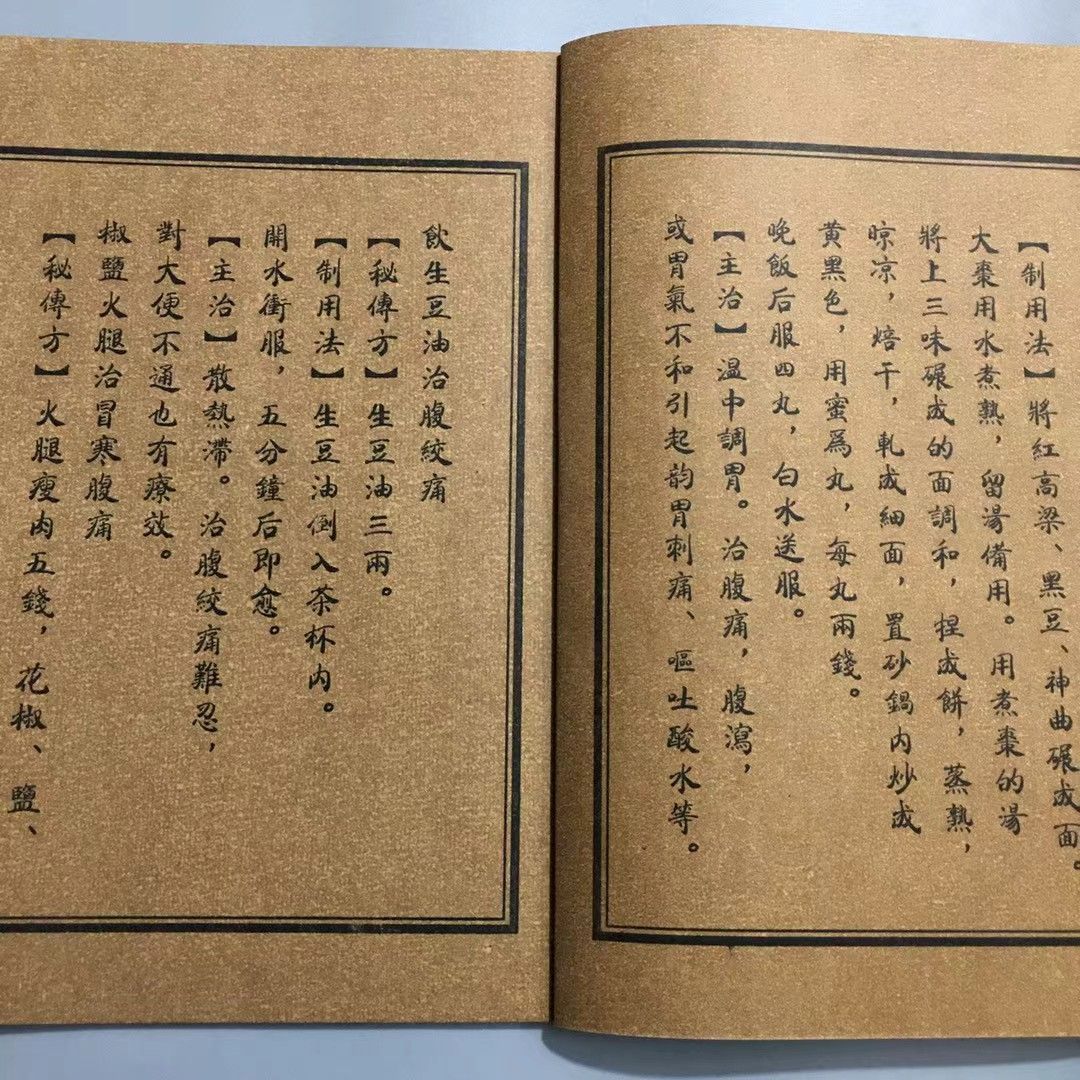 【制用法】將紅高梁、黑豆、神曲碾成面。
大棗用水煮熟，留湯備用。用煮棗的湯
將上三味碾成的面調和，捏成餅，蒸熟，
晾凉，焙干，軋成細面，置砂鍋内炒成
黄黑色，用蜜爲丸，每丸兩錢。
晚飯后服四丸，白水送服。
【主治】温中調胃。治腹痛，腹瀉，
或胃氣不和引起的胃刺痛、嘔吐酸水等。
飲生豆油治腹絞痛
【秘傳方】生豆油三兩。
【制用法】生豆油倒入茶杯内。
開水衝服，五分鐘后即愈。
【主治】散熱滯。治腹絞痛難忍，
對大便不通也有療效。
椒鹽火腿治冒寒腹痛
【秘傳方】火腿瘦肉五錢，花椒、鹽、